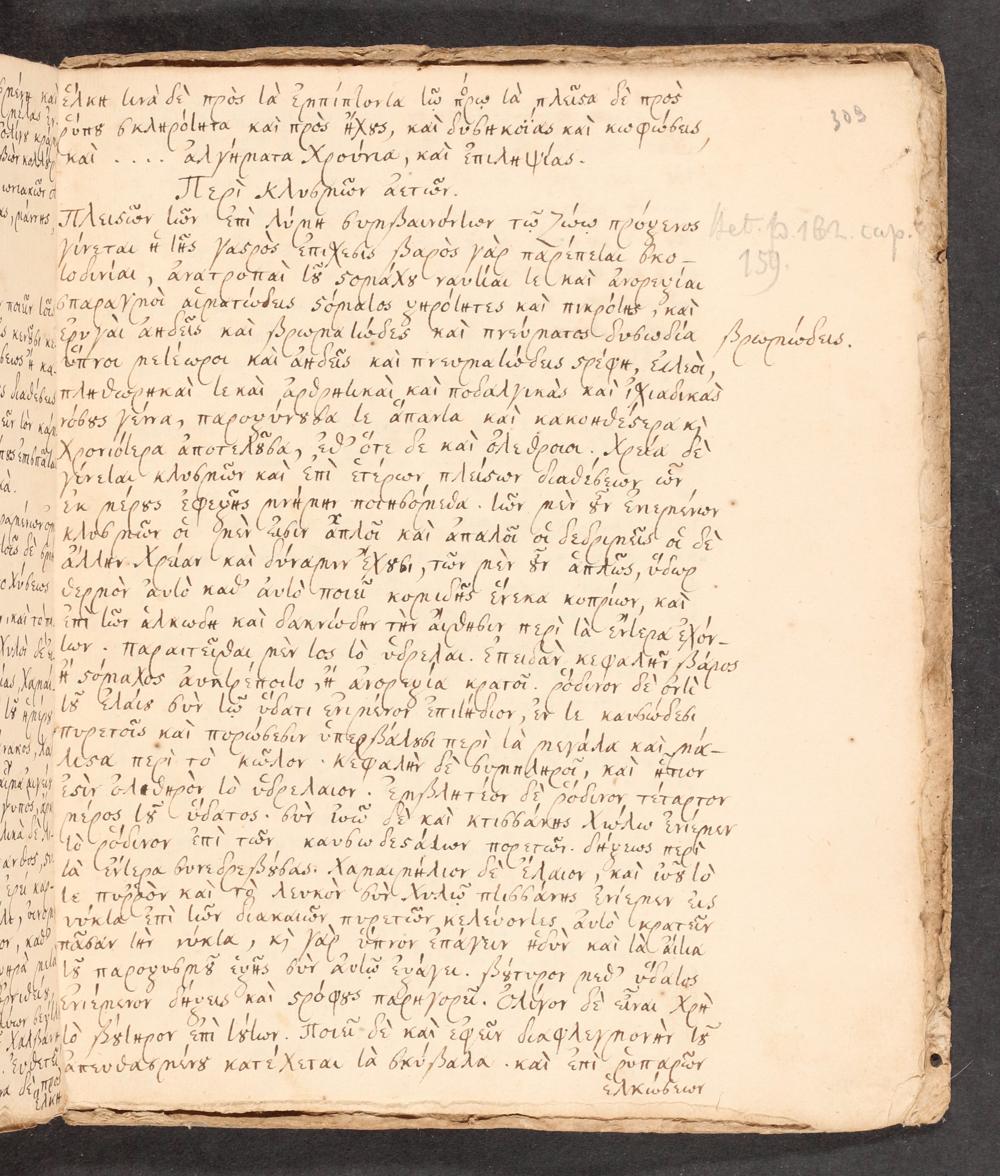 309
ἕλκη τινὰ δὲ πρὸς τὰ ἐμπίπτοντα τῷ πόρῳ τὰ πλεῖστα δὲ πρὸς
ῥύπου σκληρότητα καὶ πρὸς ἤχους, καὶ δυσηκοΐας καὶ κωφώσεις,
καὶ .... ἀλγήματα χρόνια, καὶ ἐπιληψίας.
Περὶ κλυσμῶν ἀετίου.
Πλείστων τῶν ἐπὶ λύμῃ συμβαινόντων τῷ ζώῳ πρόξενος
γίνεται ἡ τῆς γαστρὸς ἐπίσχεσις βαρὸς γὰρ παρέπεται σκο-
τοδινίαι, ἀνατροπαὶ τοῦ στομάχου ναυτίαι τε καὶ ἀνορεξίαι
σπαραγμοὶ αἱματώδεις στόματος ξηρότητες καὶ πικρότης, καὶ
ἐρυγαὶ ἀηδεῖς καὶ βρωματώδεις καὶ πνεύματος δυσωδία
βρωμώδεις.
Aet. p. 162. cap.
159.
ὕπνοι μετέωροι καὶ ἀηδεῖς καὶ πνευματώδεις στρέφη, εἰλεοὶ,
πληθωρηκαὶ τε καὶ ἀρθρητικαὶ καὶ ποδαλγικὰς καὶ ἰσχιαδικὰς
νόσους γέννα, παροξύνουσα τε ἅπαντα καὶ κακοηθέστερα καὶ
χρονιότερα ἀποτελοῦσα, ἐσθ' ὅτε δὲ καὶ ὀλέθριοι. Χρεία δὲ
γένεται κλυσμῶν καὶ ἐπὶ ἑτέρων πλείστων διαθέσεων ὧν
ἐκ μέρους ἐφεξῆς μνήμην ποιησόμεθα. τῶν μὲν οὖν ἐνιεμένων
κλυσμῶν οἱ μὲν εἰσιν ἁπλοῖ καὶ ἁπαλοῖ οἱ δὲ δριμεῖς οἱ δὲ
ἄλλην χρείαν καὶ δύναμιν ἔχουσι, τῶν μὲν οὖν ἁπλῶς, ὕδωρ
θερμὸν αὐτὸ καθ' αὐτὸ ποιεῖ κομιδῆς ἕνεκα κοπρίων, καὶ
ἐπὶ τῶν ἁλκώδη καὶ δακνώδην τὴν αἴσθησιν περὶ τὰ ἔντερα ἐχόν-
των. παραιτεῖσθαι μὲν τος τὸ ὑδρελαι. Ἐπειδὰν κεφαλὴν βάρος
ἢ στόμαχος ἀνητρέποιτο, ἢ ἀνορεξία κρατοῖ. ῥόδινον δὲ ἀντὶ
τοῦ ἐλαίου σὺν τῷ ὕδατι ἐνιέμενον ἐπιτήδιον, ἔν τε καυσώδεσι
πυρετοῖς καὶ πυρώσεσιν ὑπερβάλουσι περὶ τὰ μεγάλα καὶ μά-
λιστα περὶ τὸ κῶλον. κεφαλὴν δὲ συμπληροῖ, καὶ ἧττον
ἐστὶν ὀλισθηρὸν τὸ ὑδρέλαιον. Ἐμβλητέον δὲ ῥόδινον τέταρτον
μέρος τοῦ ὕδατος. σὺν ἰνῷ δὲ καὶ κτισσάνης χυλῷ ἐνίεμεν
τὸ ῥόδινον ἐπὶ τῶν καυσωδεστάτων πορετῶν. δήξεως περὶ
τὰ ἔντερα συνεδρευούσας. Χαμαιμήλιον δὲ ἔλαιον, καὶ ἰνοῦ τὸ
τε πυῤῥὸν καὶ τὸ λευκὸν σὺν χυλῷ πτισσάνης ἐνίεμεν εἰς
νύκτα ἐπὶ τῶν διακαιῶν πυρετῶν κελεύοντες αὐτὸ κρατεῖν
πᾶσαν τὴν νύκτα, καὶ γὰρ ὕπνον ἐπάγειν ἡδὺν καὶ τὰ αἴτια
τοῦ παροξυσμοῦ ἑξῆς σὺν αὐτῷ ἐξάγει. βούτυρον μεθ' ὕδατος
ἐνιέμενον δήξεις καὶ στρόφους παρηγορεῖ. Ὀλίγον δὲ εἶναι χρὴ
τὸ βούτηρον ἐπὶ τούτων. Ποιεῖ δὲ καὶ ἐφ' ὧν διαφλεγμονὴν τοῦ
ἀπευθασμένου κατέχεται τὰ σκύβαλα. καὶ ἐπὶ ῥυπαρῶν
ἑλκώσεων